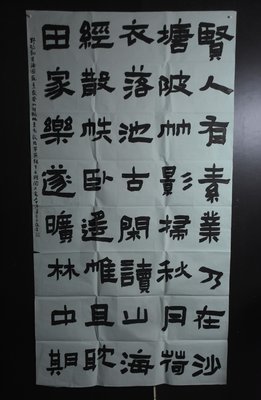 賢人有素業乃在沙
塘陂竹影掃秋月荷
衣落池古閑讀山海
經散帙臥遙帷且耽
田家樂遂曠林中期